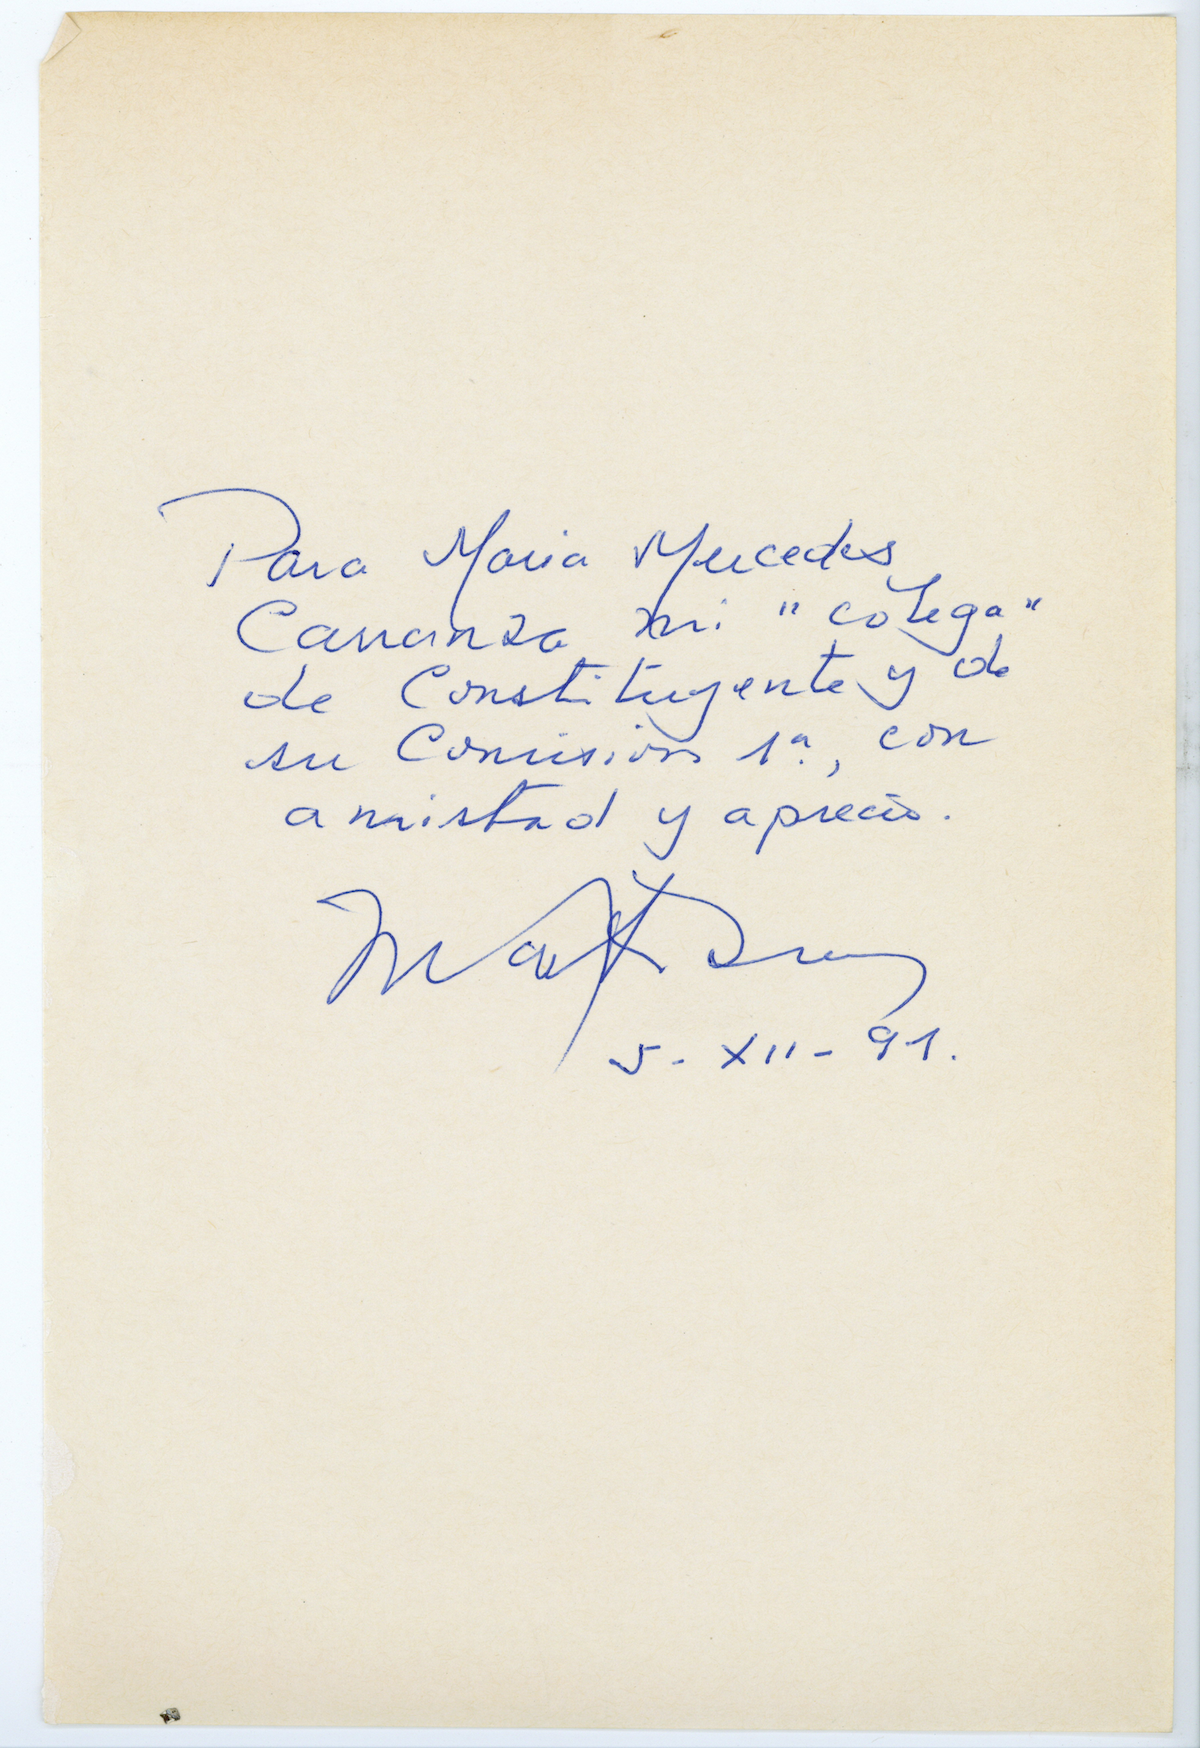 Para Maria Mercedes
Carranza mi "colega"
de Constituyente y de
su Comision 1ª, con
amistad y aprecio.
5-XII-91.